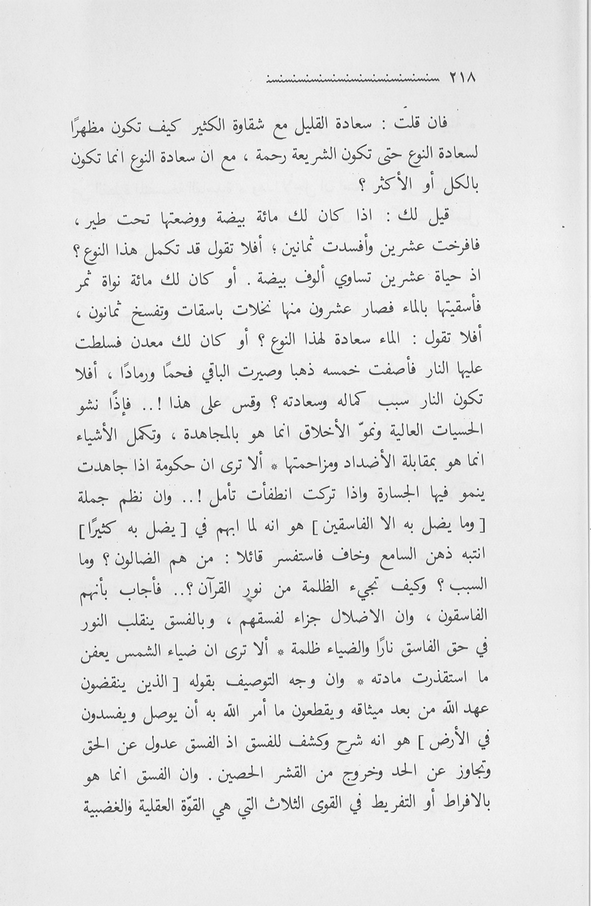 ٢١٨
فان قلتَ : سعادة القليل مع شقاوة الكثير كيف تكون مظهرًا
لسعادة النوع حتى تكون الشريعة رحمة ، مع ان سعادة النوع انما تكون
بالكل أو الأكثر ؟
قيل لك : اذا كان لك مائة بيضة ووضعتها تحت طير ،
فافرخت عشرين وأفسدت ثمانين ؛ أفلا تقول قد تكمل هذا النوع ؟
اذ حياة عشرين تساوي ألوف بيضة . أو كان لك مائة نواة ثمر
فأسقيتها بالماء فصار عشرون منها نخلات باسقات وتفسخ ثمانون ،
أفلا تقول : الماء سعادة لهذا النوع ؟ أو كان لك معدن فسلطت
عليها النار فأصفت خمسه ذهبا وصيرت الباقي فحمًا ورمادًا ، أفلا
تكون النار سبب كماله وسعادته ؟ وقس على هذا !.. فإذًا نشو
الحسيات العالية ونموّ الأخلاق انما هو بالمجاهدة ، وتكمل الأشياء
انما هو بمقابلة الأضداد ومزاحمتها * ألا ترى ان حكومة اذا جاهدت
ينمو فيها الجسارة واذا تركت انطفأت تأمل !.. وان نظم جملة
[ وما يضل به الا الفاسقين ] هو انه لما ابهم في [ يضل به كثيرًا ]
انتبه ذهن السامع وخاف فاستفسر قائلا : من هم الضالون ؟ وما
السبب ؟ وكيف تجيء الظلمة من نور القرآن ؟.. فأجاب بأنهم
الفاسقون ، وان الاضلال جزاء لفسقهم ، وبالفسق ينقلب النور
في حق الفاسق نارًا والضياء ظلمة * ألا ترى ان ضياء الشمس يعفن
ما استقذرت مادته * وان وجه التوصيف بقوله [ الذين ينقضون
عهد الله من بعد ميثاقه ويقطعون ما أمر الله به أن يوصل ويفسدون
في الأرض ] هو انه شرح وكشف للفسق اذ الفسق عدول عن الحق
وتجاوز عن الحد وخروج من القشر الحصين . وان الفسق انما هو
بالافراط أو التفريط في القوى الثلاث التي هي القوّة العقلية والغضبية